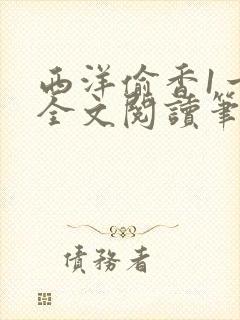 西洋偷香1一
全文閱讀筆
債務者